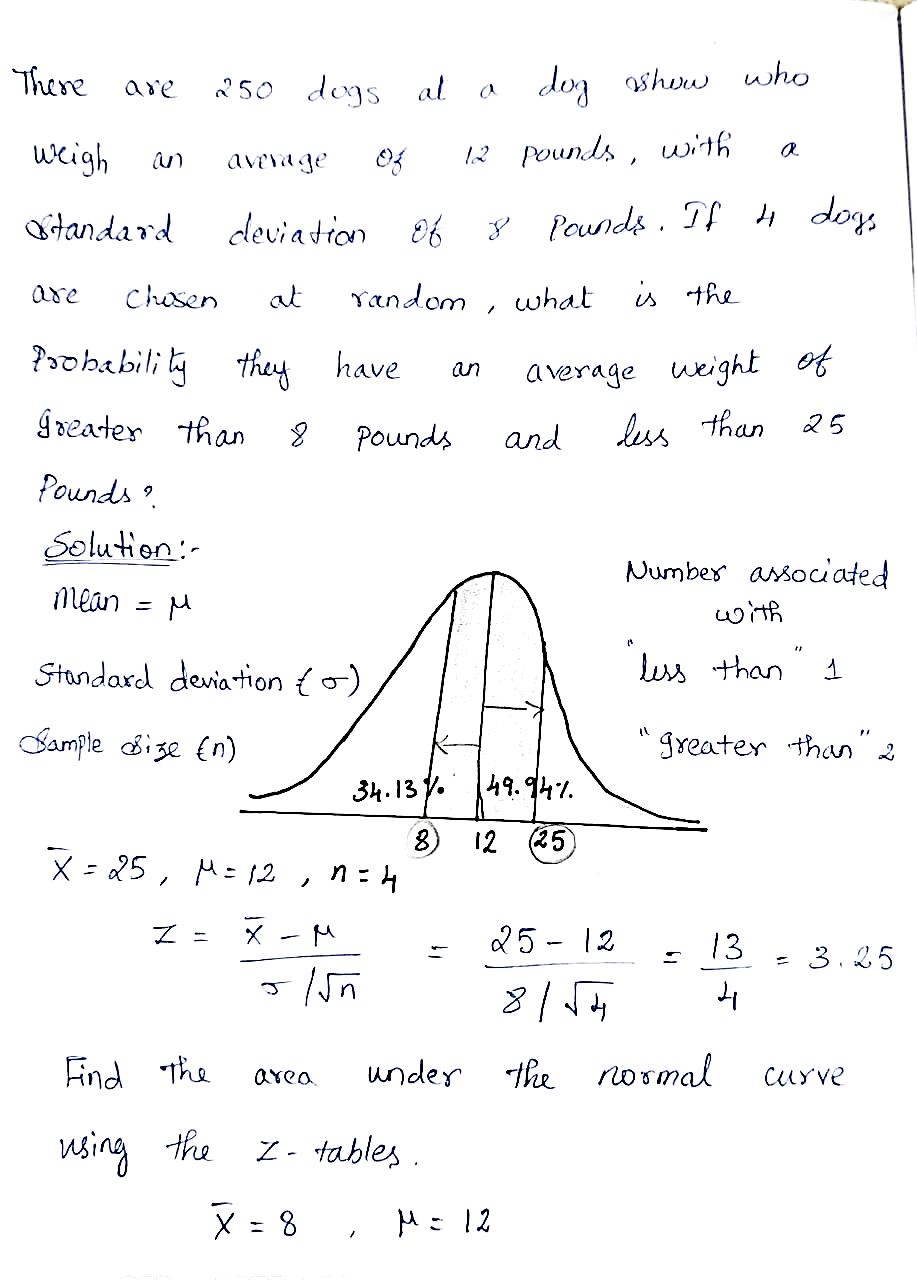 There are 250 dogs at a dog show who
weigh an average of 12 pounds, with a
standard deviation of 8 Pounds. If 4 dogs
are chosen at random, what is the
Probability they have an average weight of
greater than 8 pounds and less than 25
Pounds?
Solution:-
mean = μ
Standard deviation (σ)
Sample size (n)
Number associated
with
"less than" 1
"greater than" 2
34.13% 49.94%
8 12 25
X̄ = 25, μ = 12, n = 4
Z = X̄ - μ / σ/√n = 25 - 12 / 8/√4 = 13/4 = 3.25
Find the area under the normal curve
using the Z-tables.
X̄ = 8, μ = 12